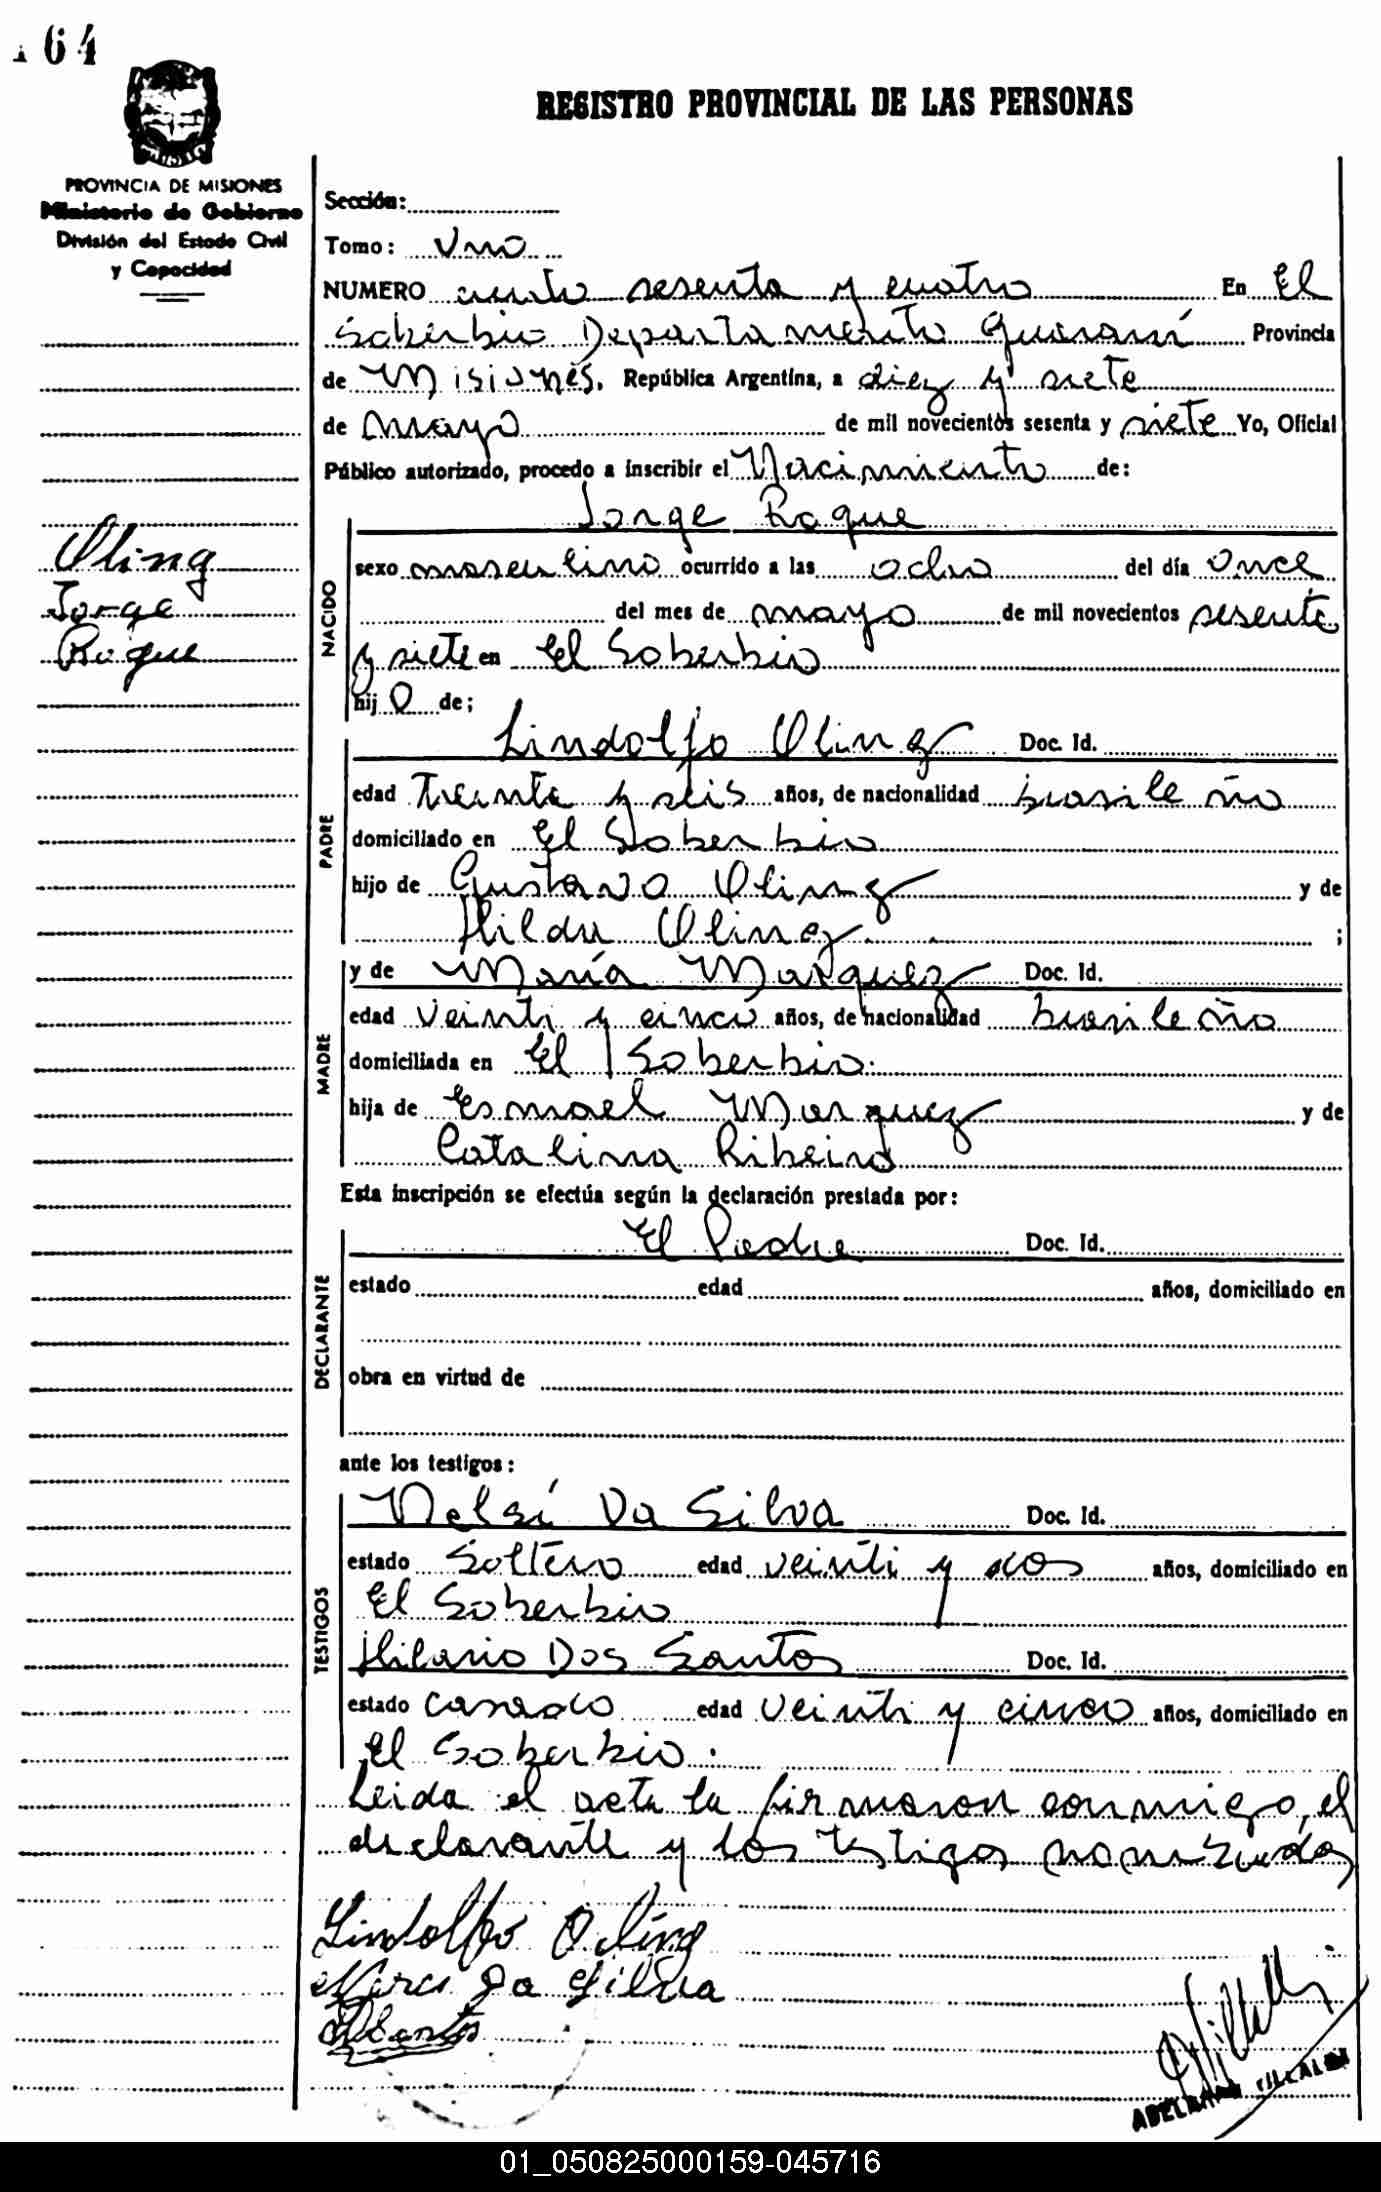 164
REGISTRO PROVINCIAL DE LAS PERSONAS
PROVINCIA DE MISIONES
Ministerio de Gobierno
División del Estado Civil
y Capacidad
Sección:
Tomo: Uno
NUMERO ciento sesenta y cuatro En El
Soberbio Departamento Guaraní Provincia
de Misiones, República Argentina, a diez y siete
de mayo de mil novecientos sesenta y siete Yo, Oficial
Público autorizado, procedo a inscribir el Nacimiento de:
Oling
Jorge
Roque
NACIDO
Jorge Roque
sexo masculino ocurrido a las ocho del día once
del mes de mayo de mil novecientos sesenta
y siete en El Soberbio
hij o de;
PADRE
Lindolfo Oling Doc. Id.
edad treinta y seis años, de nacionalidad brasileño
domiciliado en El Soberbio
hijo de Gustavo Oling y de
Hilda Oling ;
MADRE
y de María Marquez Doc. Id.
edad veinti y cinco años, de nacionalidad brasileño
domiciliada en El Soberbio.
hija de Esmael Marquez y de
Catalina Ribeiro
Esta inscripción se efectúa según la declaración prestada por:
DECLARANTE
El Padre Doc. Id.
estado edad años, domiciliado en
obra en virtud de
ante los testigos:
TESTIGOS
Nelsí Da Silva Doc. Id.
estado Soltero edad veinti y dos años, domiciliado en
El Soberbio
Hilario Dos Santos Doc. Id.
estado casado edad veinti y cinco años, domiciliado en
El Soberbio.
Leida el acta la firmaron conmigo, el
declarante y los testigos
Lindolfo Oling
Da Silva
ADELA
01_050825000159-045716